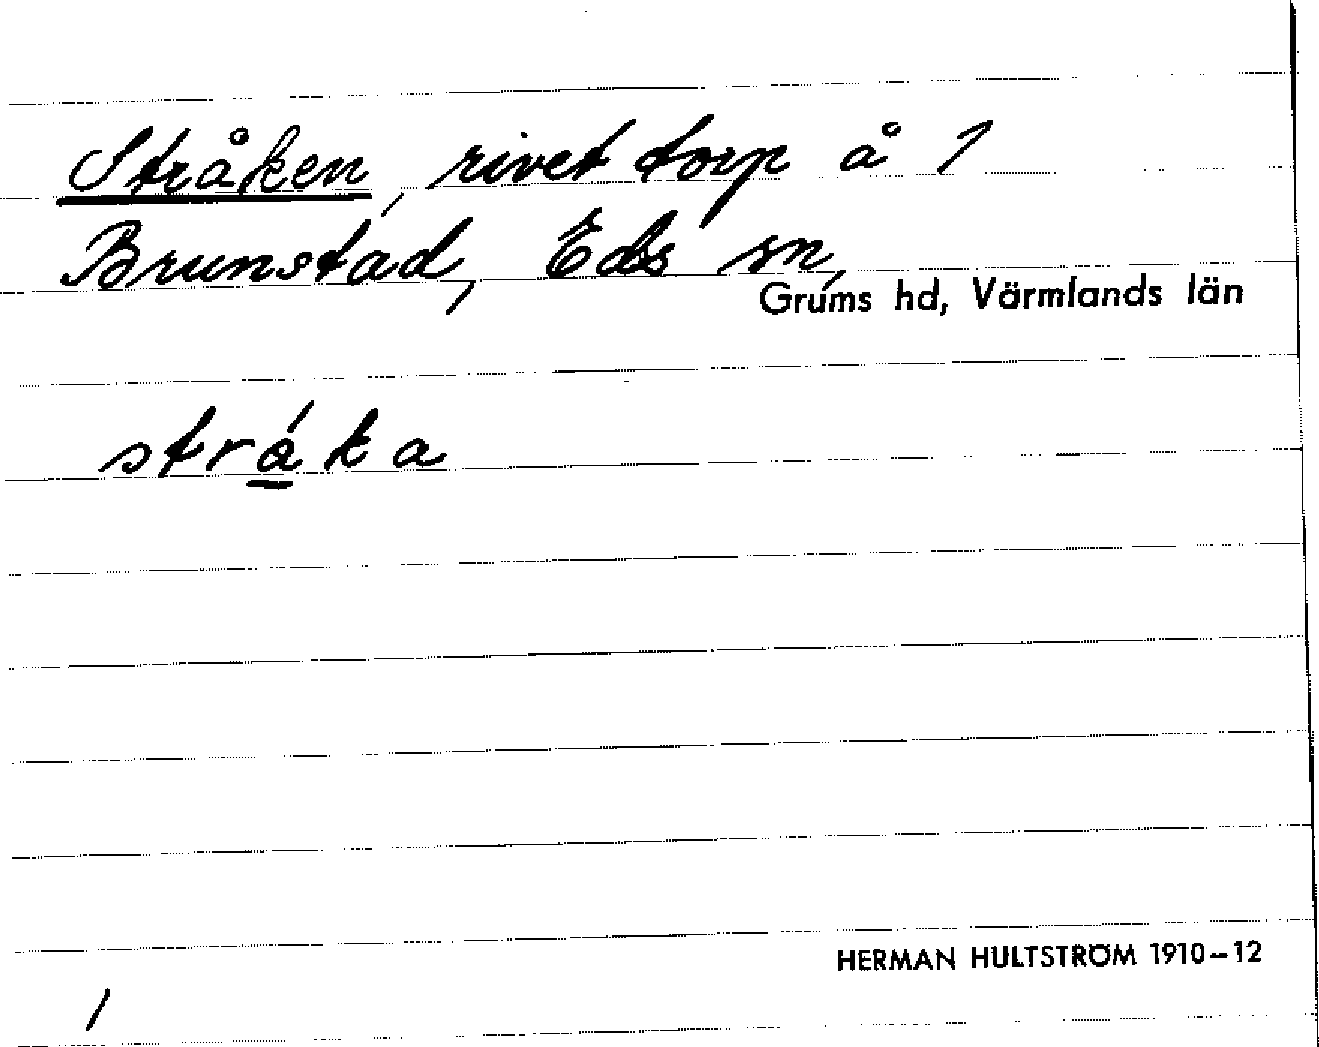 Stråken, rivet torp å 1
Brunstad, Eds sn,
Grums hd, Värmlands län
strá̱ka
HERMAN HULTSTRÖM 1910–12
1